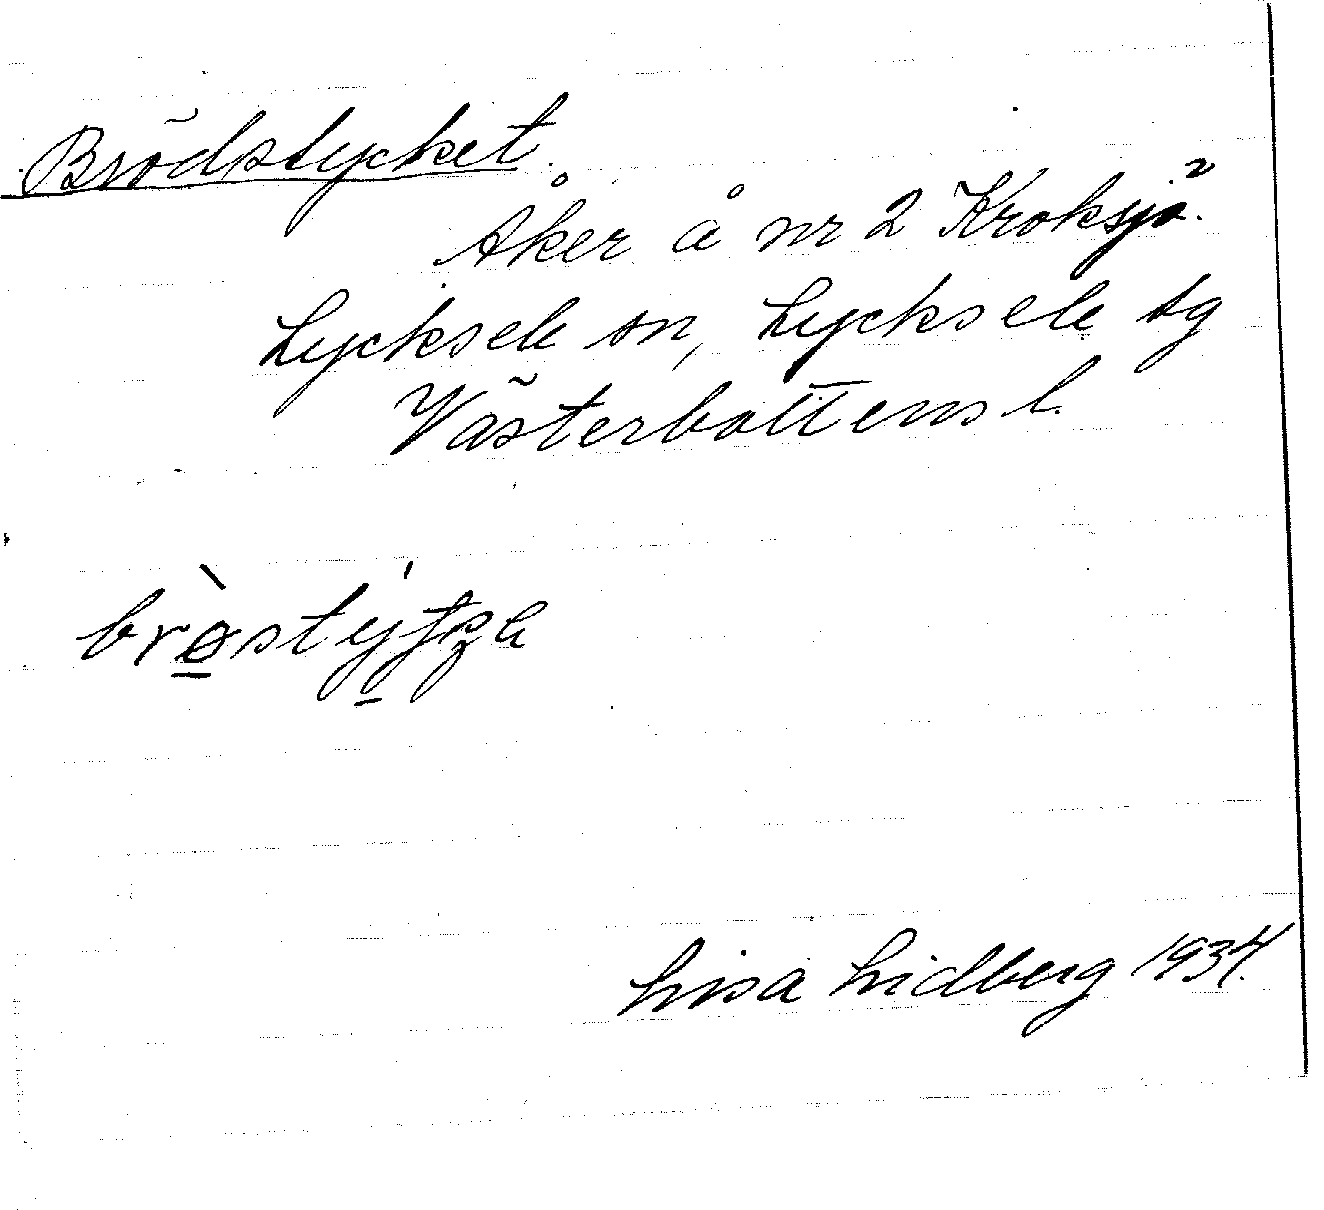 Brödstycket.
Åker å nr 2 Kroksjö.
Lycksele sn, Lycksele tg
Västerbottens l.
Lisa Lidberg 1934.